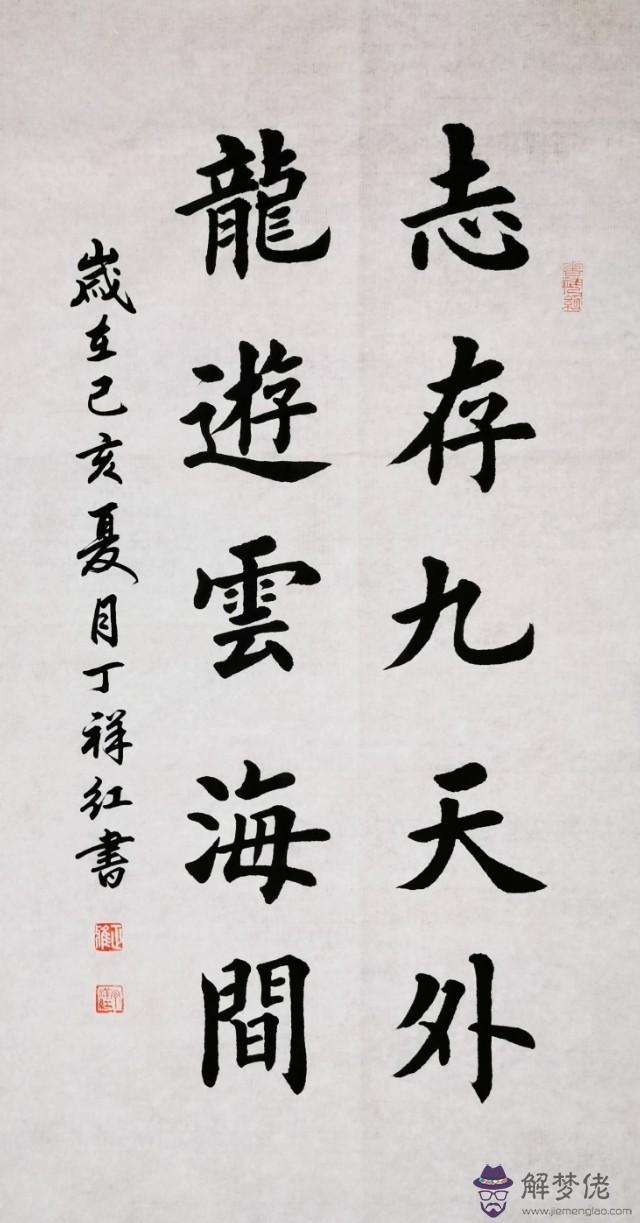 志存九天外
龍遊雲海間
歲在己亥夏月丁祥红書
解梦佬
www.jiemenglao.com